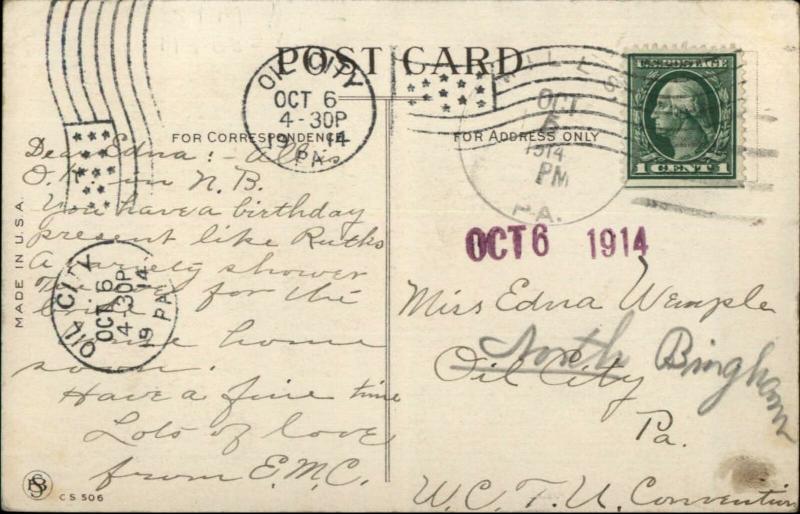 POST CARD
FOR CORRESPONDENCE
FOR ADDRESS ONLY
MADE IN U.S.A.
OIL CITY
OCT 6
4-30P
1914
PA.
OCT
1914
PM
PA.
U.S. POSTAGE
1 CENT 1
OCT 6 1914
Dear Edna:- All is
O.K. in N.B.
You have a birthday
present like Ruths
A variety shower
for the
home
soon.
Have a fine time
Lots of love
from E.M.C.
OIL CITY
OCT 6
4-30P
19 14
PA
Miss Edna Wemple
North Bingham
Oil City
Pa.
W.C.T.U. Convention
CS 506